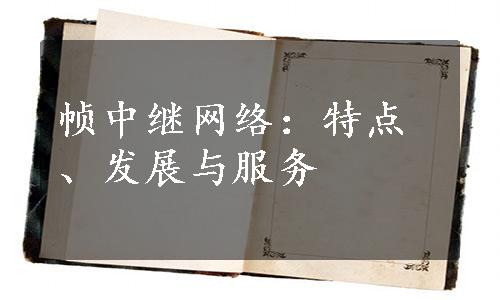 帧中继网络：特点
、发展与服务